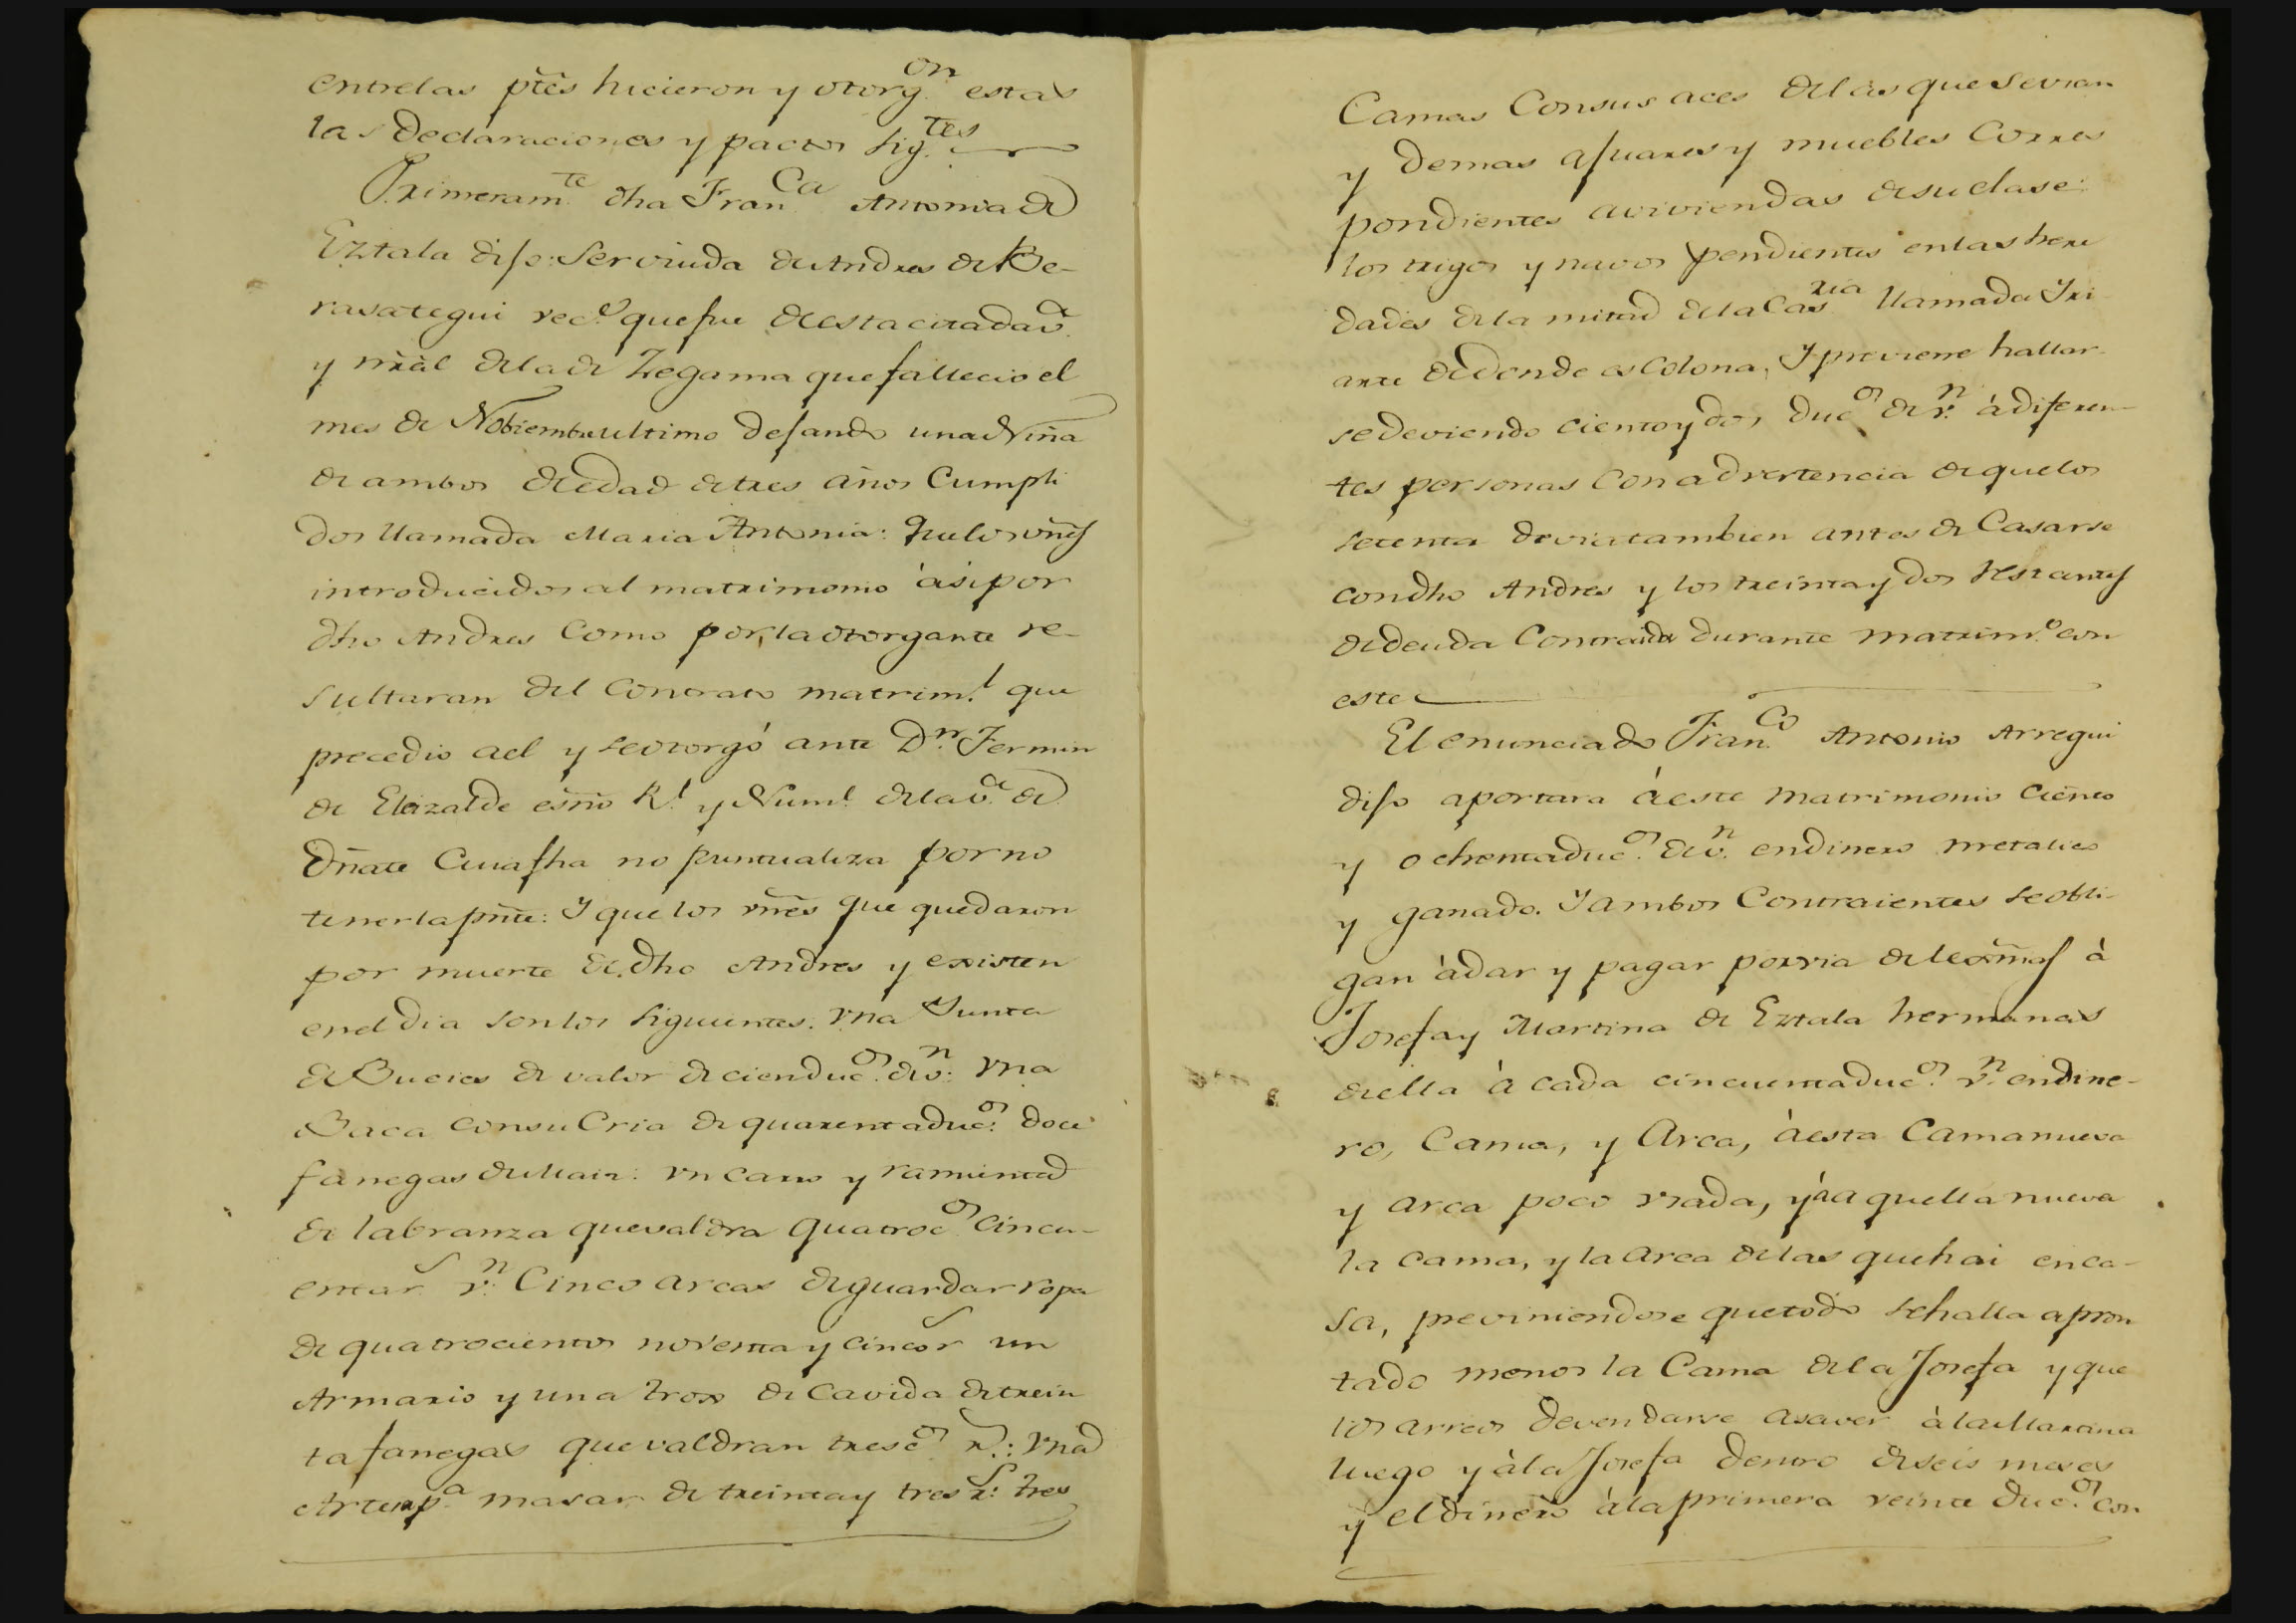 entrelas ptēs hicieron y otorg.on estas
las declaraciones y pactos sig.tes
Primeram.te dha Fran.ca Antonia de
Eztala dijo: Ser viuda de Andres de Be-
rasategui vec.o que fue de esta citada v.
y nrāl dela de Zegama que fallecio el
mes de Nobiembre ultimo dejando una Niña
de ambos de edad de tres años Cumpli
dos llamada Maria Antonia: que los vnēs
introducidos al matrimonio ási por
dho Andres Como por la otorgante re-
sultaran del Contrato matrim.l que
precedio a el y se otorgó ante D.n Fermin
de Elizalde esn̄o R.l y Num.l dela v.a de
Oñate Cuia fha no puntualiza por no
tenerla pn̄te: Y que los vnēs que quedaron
por muerte de dho Andres y existen
en el dia son los siguientes. Vna Yunta
de Bueies de valor de cien duc.os de v.n Vna
Baca con su Cria de quarenta duc.os doce
fanegas de Maiz: vn carro y ramienta
de labranza que valdra quatroc.os Cincu-
enta r.s v.n Cinco arcas de guardar ropa
de quatrocientos noventa y cinco r.s un
Armario y una trox de Cavida de trein
ta fanegas que valdran tresc.os r.s: Vna
Artesa p.a masar de treinta y tres r.s: tres
Camas Con sus aces de las que se vian
y demas ajuares y muebles Corres
pondientes a viviendas de su clase:
los trigos y navos pendientes en las here
dades de la mitad de la Cas.ria llamada Yri
arte de donde es Colona, Y previene hallar-
se deviendo ciento y dos duc.os de v.n à diferen-
tes personas Con advertencia de que los
setenta devia tambien antes de Casarse
con dho Andres y los treinta y dos restantes
de deuda Contraida durante matrim.o con
este
El enunciado Fran.co Antonio Arregui
dijo aportara á este matrimonio ciento
y ochenta duc.os de v.n en dinero metalico
y ganado. Y ambos Contraientes se obli-
gan à dar y pagar por via de lexīmas à
Josefa y Martina de Eztala hermanas
de ella à cada cincuenta duc.os v.n en dine-
ro, Cama, y Arca, à esta Cama nueva
y arca poco vsada, y à aquella nueva
la cama, y la arca de las que hai en ca-
sa, previniendose que todo se halla apron
tado menos la Cama de la Josefa y que
los arreos deven darse a saver à la Martina
luego y à la Josefa dentro de seis meses
y el dinero à la primera veinte duc.os con